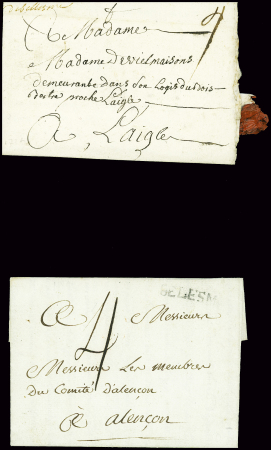 A Madame
Madame de vielmaisons
demeurante dans son Logis du bois
proche Laigle
A Laigle
4
BELESM
A Messieurs
Messieurs Les membres
du Comité d'alençon
à alençon